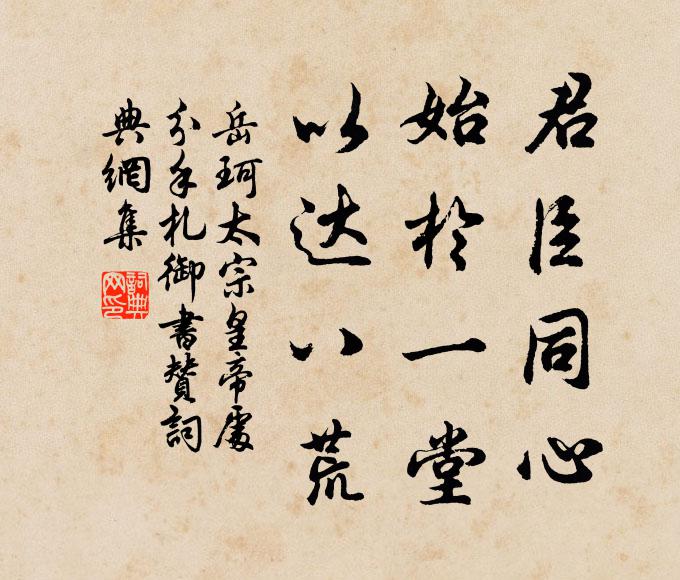 君臣同心
始於一堂
以达八荒
岳珂太宗皇帝處
分手札御書贊詞
典網集
詞典
网印